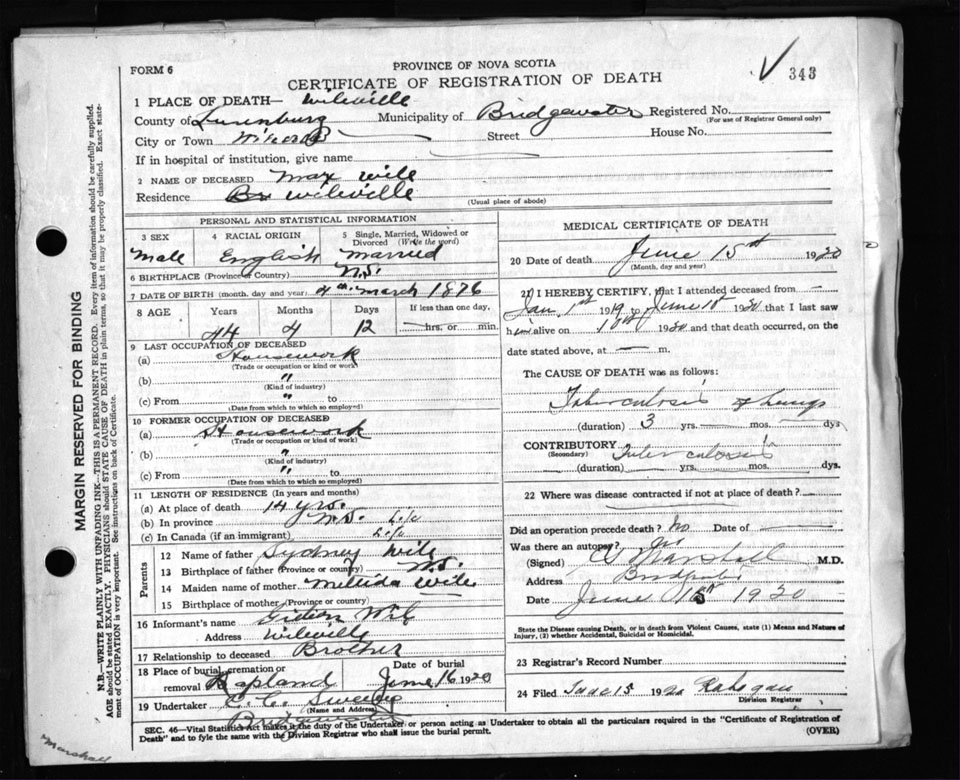 FORM 6
PROVINCE OF NOVA SCOTIA
CERTIFICATE OF REGISTRATION OF DEATH
343
1 PLACE OF DEATH— Wileville
County of Lunenburg Municipality of Bridgewater Registered No.
(For use of Registrar General only)
City or Town Street House No.
If in hospital of institution, give name
2 NAME OF DECEASED Max Wile
Residence Wileville
(Usual place of abode)
PERSONAL AND STATISTICAL INFORMATION
3 SEX 4 RACIAL ORIGIN 5 Single, Married, Widowed or Divorced (Write the word)
Male English Married
6 BIRTHPLACE (Province or Country) N.S.
7 DATE OF BIRTH (month, day and year) 4th March 1876
8 AGE Years Months Days If less than one day,
44 4 12 hrs. or min.
9 LAST OCCUPATION OF DECEASED
(a) Housework
(Trade or occupation or kind or work)
(b) "
(Kind of industry)
(c) From "
(Date from which to which so employed)
10 FORMER OCCUPATION OF DECEASED
(a) Housework
(Trade or occupation or kind of work)
(b) "
(Kind of industry)
(c) From "
(Date from which to which so employed)
11 LENGTH OF RESIDENCE (In years and months)
(a) At place of death 14 yrs.
(b) In province N.S. Life
(c) In Canada (if an immigrant) Life
Parents
12 Name of father Sydney Wile
13 Birthplace of father (Province or country) N.S.
14 Maiden name of mother Wile
15 Birthplace of mother (Province or country)
16 Informant's name Gideon Wile
Address Wileville
17 Relationship to deceased Brother
18 Place of burial, cremation or removal Lapland Date of burial June 16 1920
19 Undertaker
(Name and Address)
Bridgewater
MEDICAL CERTIFICATE OF DEATH
20 Date of death June 15th 1920
(Month, day and year)
21 I HEREBY CERTIFY, that I attended deceased from
Jan 1st 1919 to June 1st 1920 that I last saw
him alive on 10th 1920 and that death occurred, on the
date stated above, at — m.
The CAUSE OF DEATH was as follows:
Tuberculosis of Lungs
(duration) 3 yrs. mos. dys
CONTRIBUTORY Tuberculosis
(Secondary)
(duration) yrs. mos. dys.
22 Where was disease contracted if not at place of death?
Did an operation precede death? No Date of
Was there an autopsy?
(Signed) Marshall M.D.
Address Bridgewater
Date June 15th 1920
State the Disease causing Death, or in death from Violent Causes, state (1) Means and Nature of
Injury, (2) whether Accidental, Suicidal or Homicidal.
23 Registrar's Record Number
24 Filed June 15 1920
Division Registrar
SEC. 46—Vital Statistics Act makes it the duty of the Undertaker or person acting as Undertaker to obtain all the particulars required in the "Certificate of Registration of
Death" and to fyle the same with the Division Registrar who shall issue the burial permit.
(OVER)
MARGIN RESERVED FOR BINDING
N.B.—WRITE PLAINLY WITH UNFADING INK—THIS IS A PERMANENT RECORD. Every item of information should be carefully supplied.
AGE should be stated EXACTLY. PHYSICIANS should STATE CAUSE OF DEATH in plain terms, so that it may be properly classified. Exact state-
ment of OCCUPATION is very important. See instructions on back of Certificate.
Marshall